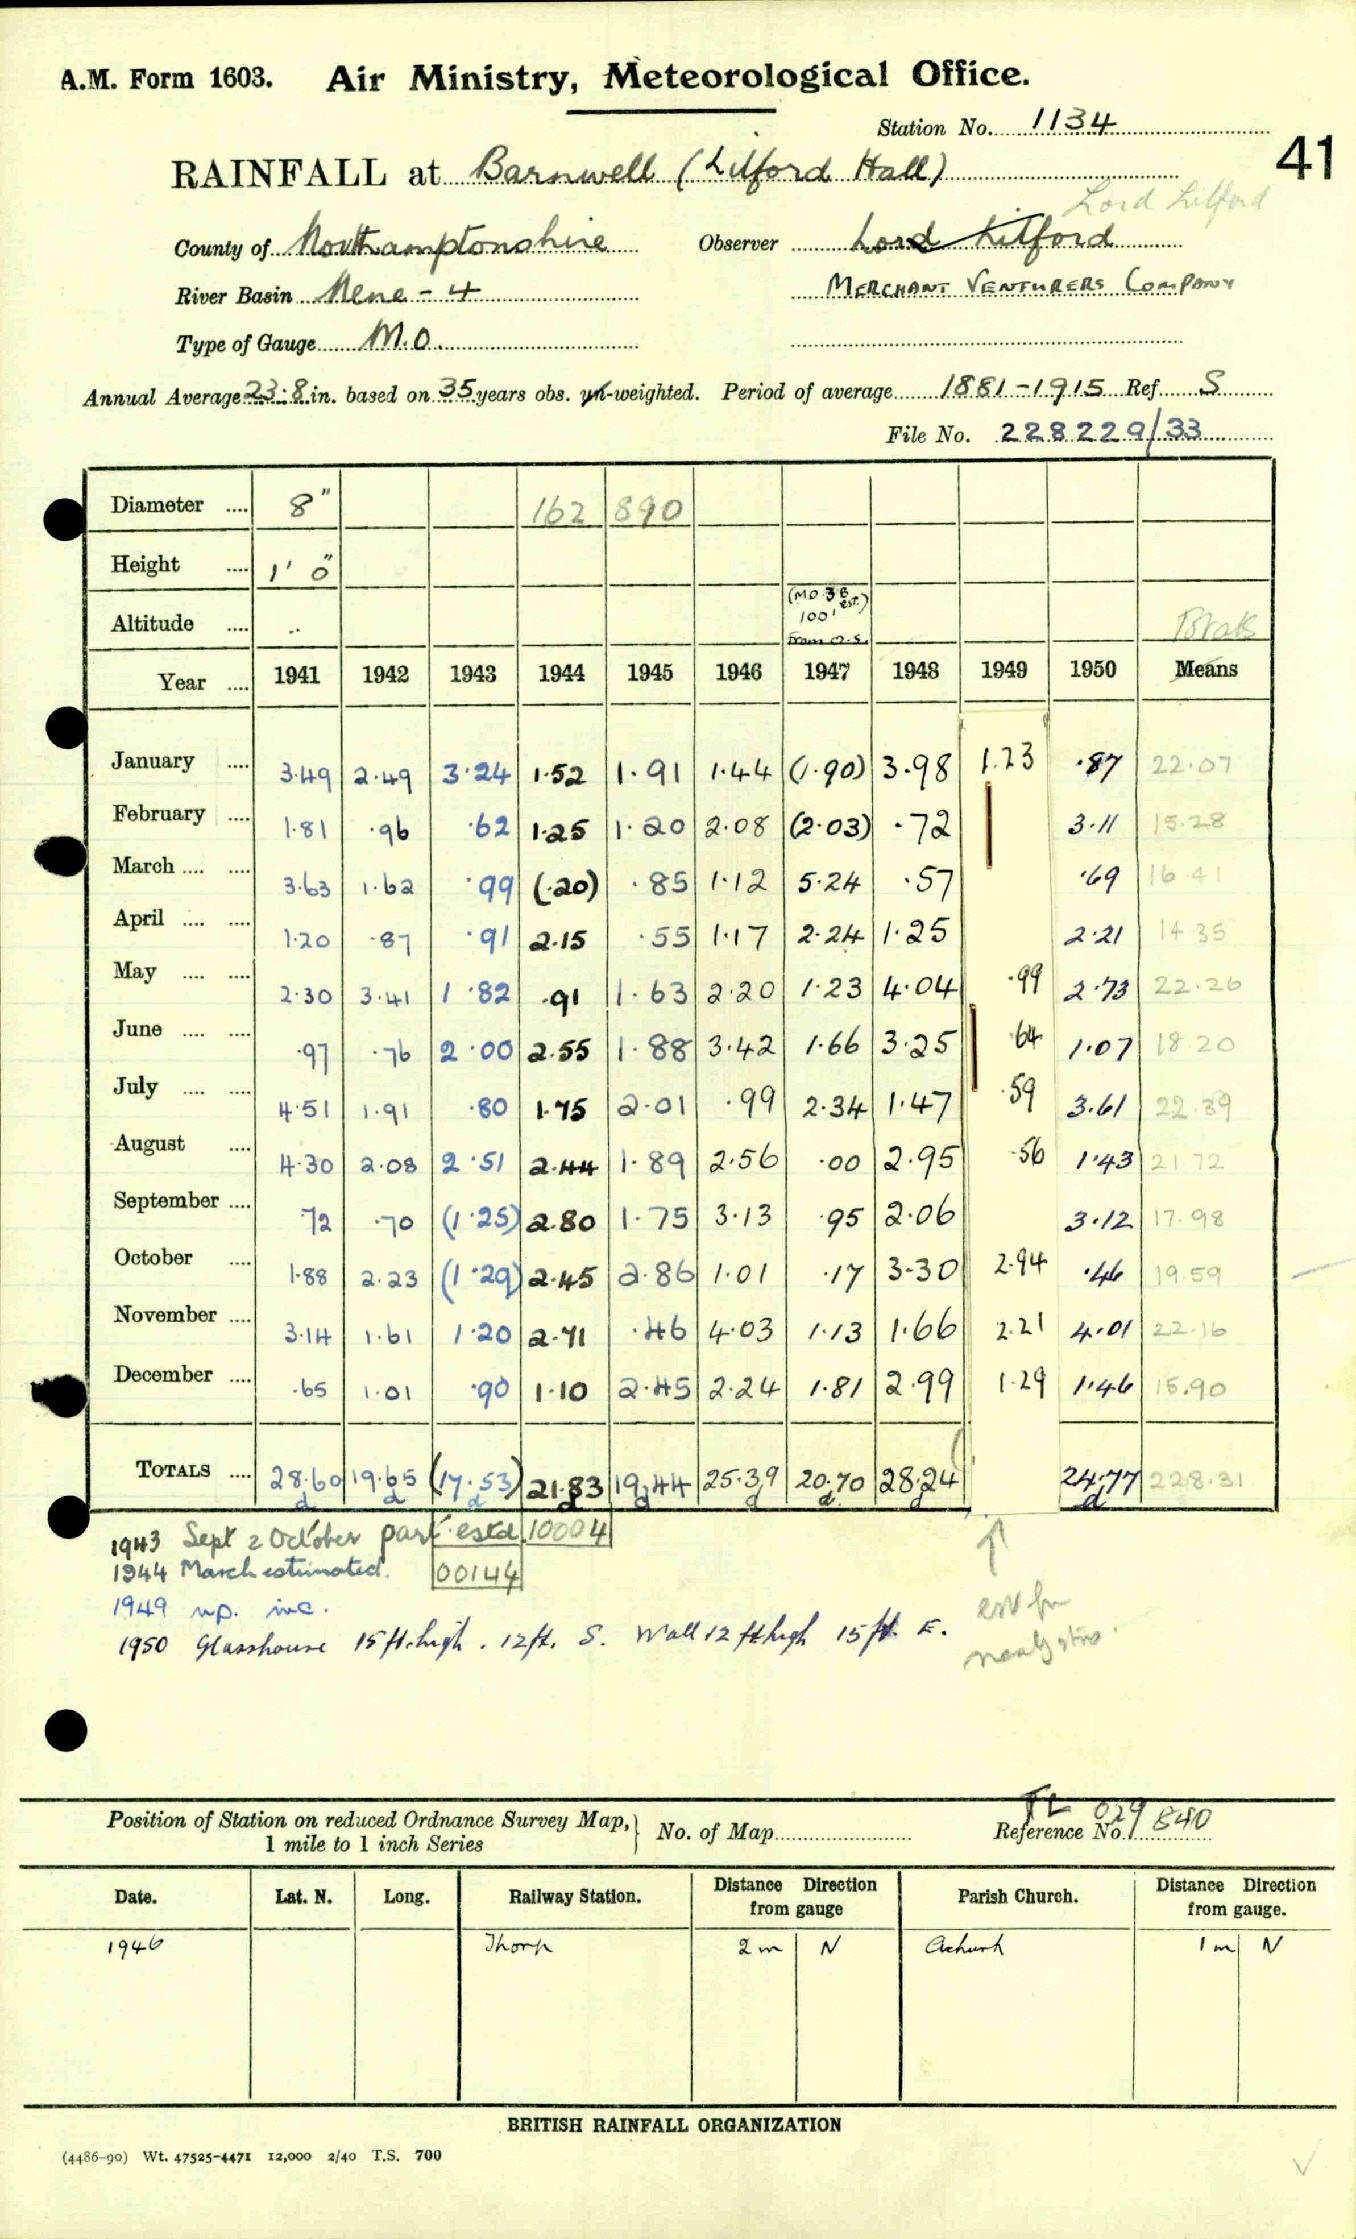 A.M. Form 1603. Air Ministry, Meteorological Office.
Station No. 1134
41
RAINFALL at Barnwell (Lilford Hall)
Lord Lilford
County of Northamptonshire Observer Lord Lilford
River Basin Nene - 4 MERCHANT VENTURERS COMPANY
Type of Gauge M.O.
Annual Average 23.8 in. based on 35 years obs. un-weighted. Period of average 1881-1915 Ref S
File No. 228229/33
Diameter .... 8" 162 890
Height .... 1' 0"
Altitude .... .. (MO 3B est.) 100' from O.S.
Totals
Year .... 1941 1942 1943 1944 1945 1946 1947 1948 1949 1950 Means
January .... 3.49 2.49 3.24 1.52 1.91 1.44 (1.90) 3.98 1.23 .87 22.07
February .... 1.81 .96 .62 1.25 1.20 2.08 (2.03) .72 3.11 15.28
March .... .... 3.63 1.62 .99 (.20) .85 1.12 5.24 .57 .69 16.41
April .... .... 1.20 .87 .91 2.15 .55 1.17 2.24 1.25 2.21 14.35
May .... .... 2.30 3.41 1.82 .91 1.63 2.20 1.23 4.04 .99 2.73 22.26
June .... .... .97 .76 2.00 2.55 1.88 3.42 1.66 3.25 .64 1.07 18.20
July .... .... 4.51 1.91 .80 1.75 2.01 .99 2.34 1.47 .59 3.61 22.39
August .... 4.30 2.08 2.51 2.44 1.89 2.56 .00 2.95 .56 1.43 21.72
September .... .72 .70 (1.25) 2.80 1.75 3.13 .95 2.06 3.12 17.98
October .... 1.88 2.23 (1.29) 2.45 2.86 1.01 .17 3.30 2.94 .46 19.59
November .... 3.14 1.61 1.20 2.71 .46 4.03 1.13 1.66 2.21 4.01 22.16
December .... .65 1.01 .90 1.10 2.45 2.24 1.81 2.99 1.29 1.46 15.90
TOTALS .... 28.60 19.65 (17.53) 21.83 19.44 25.39 20.70 28.24 24.77 228.31
d d d d d d d d d
1943 Sept & October part estd. 10004
1944 March estimated. 00144
1949 np. inc.
1950 Glasshouse 15 ft. high. 12 ft. S. Wall 12 ft high 15 ft. E.
est fm
nearby stns.
Position of Station on reduced Ordnance Survey Map, 1 mile to 1 inch Series No. of Map Reference No. TL 029 840
Date. Lat. N. Long. Railway Station. Distance Direction from gauge Parish Church. Distance Direction from gauge.
1946 Thorp 2 m N Achurch 1 m N
BRITISH RAINFALL ORGANIZATION
(4486-90) Wt. 47525-4471 12,000 2/40 T.S. 700